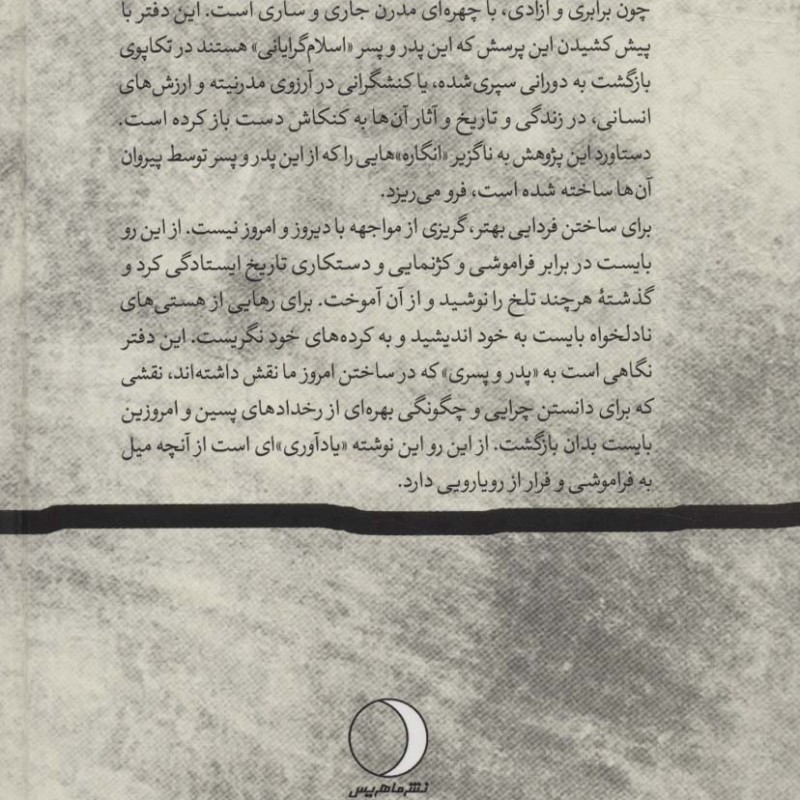 چون برابری و آزادی، با چهره‌ای مدرن جاری و ساری است. این دفتر با
پیش کشیدن این پرسش که این پدر و پسر «اسلام‌گرایانی» هستند در تکاپوی
بازگشت به دورانی سپری‌شده، یا کنشگرانی در آرزوی مدرنیته و ارزش‌های
انسانی، در زندگی و تاریخ و آثار آن‌ها به کنکاش دست باز کرده است.
دستاورد این پژوهش به ناگزیر «انگاره»هایی را که از این پدر و پسر توسط پیروان
آن‌ها ساخته شده است، فرو می‌ریزد.
برای ساختن فردایی بهتر، گریزی از مواجهه با دیروز و امروز نیست. از این رو
بایست در برابر فراموشی و کژنمایی و دستکاری تاریخ ایستادگی کرد و
گذشتهٔ هرچند تلخ را نوشید و از آن آموخت. برای رهایی از هستی‌های
نادلخواه بایست به خود اندیشید و به کرده‌های خود نگریست. این دفتر
نگاهی است به «پدر و پسری» که در ساختن امروز ما نقش داشته‌اند، نقشی
که برای دانستن چرایی و چگونگی بهره‌ای از رخدادهای پسین و امروزین
بایست بدان بازگشت. از این رو این نوشته «یادآوری»ای است از آنچه میل
به فراموشی و فرار از رویارویی دارد.
نشر ماهریس